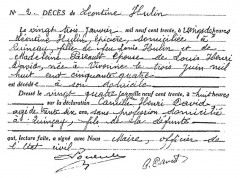 No 2. DÉCÈS de Léontine Hulin
Le vingt trois janvier mil neuf cent trente, à onze heures
Léontine Hulin, épicière, domiciliée à
Quinçay, fille de feu Louis Hulin et de
Madeleine épouse de Louis Henri
David, née à Vivonne le trois juin mil
huit cent cinquante quatre
est décédée à son domicile
Dressé le vingt quatre janvier mil neuf cent trente, à huit heures
sur la déclaration Camille Henri David
âgé de trente six ans profession domicilié
à Quinçay, fils de la défunte
qui, lecture faite, a signé avec Nous Maire, officier de
l'état civil.
David